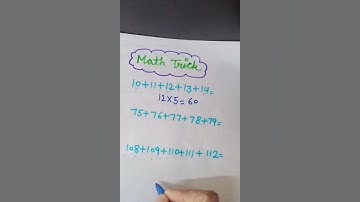 Math Trick
10+11+12+13+14=
12×5=60
75+76+77+78+79=
108+109+110+111+112=